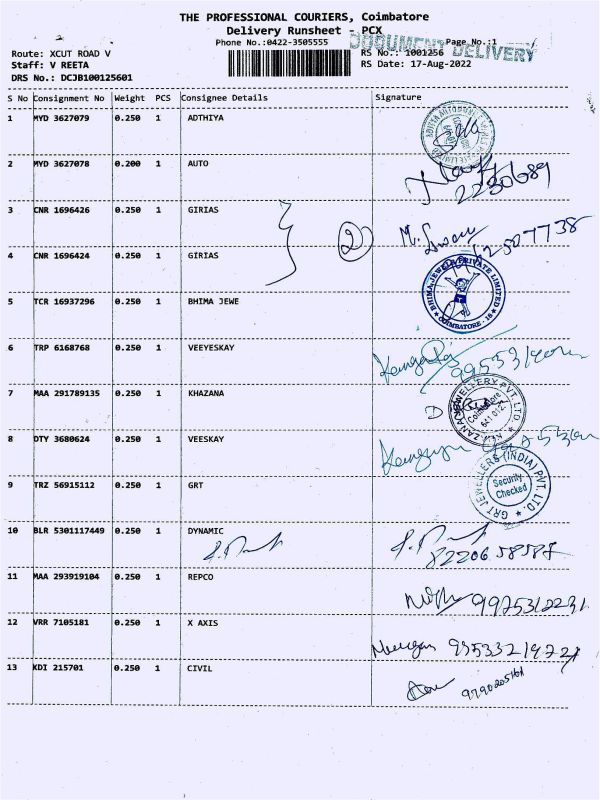 THE PROFESSIONAL COURIERS, Coimbatore
Delivery Runsheet - PCX
Phone No.:0422-3505555
DOCUMENT DELIVERY
Page No.:1
Route: XCUT ROAD V
RS No.: 1001256
Staff: V REETA
RS Date: 17-Aug-2022
DRS No.: DCJB100125601
S No Consignment No Weight PCS Consignee Details Signature
1 MYD 3627079 0.250 1 ADTHIYA
2 MYD 3627078 0.200 1 AUTO
2230689
3 CNR 1696426 0.250 1 GIRIAS
2
4 CNR 1696424 0.250 1 GIRIAS
BHIMA JEWELS PRIVATE LIMITED
COIMBATORE - 16
5 TCR 16937296 0.250 1 BHIMA JEWE
6 TRP 6168768 0.250 1 VEEYESKAY
7 MAA 291789135 0.250 1 KHAZANA
KHAZANA JEWELLERY PVT. LTD.
Coimbatore
641 012
8 DTY 3680624 0.250 1 VEESKAY
9 TRZ 56915112 0.250 1 GRT
GRT JEWELLERS (INDIA) PVT. LTD.
Security
Checked
10 BLR 5301117449 0.250 1 DYNAMIC
11 MAA 293919104 0.250 1 REPCO
12 VRR 7105181 0.250 1 X AXIS
13 KDI 215701 0.250 1 CIVIL